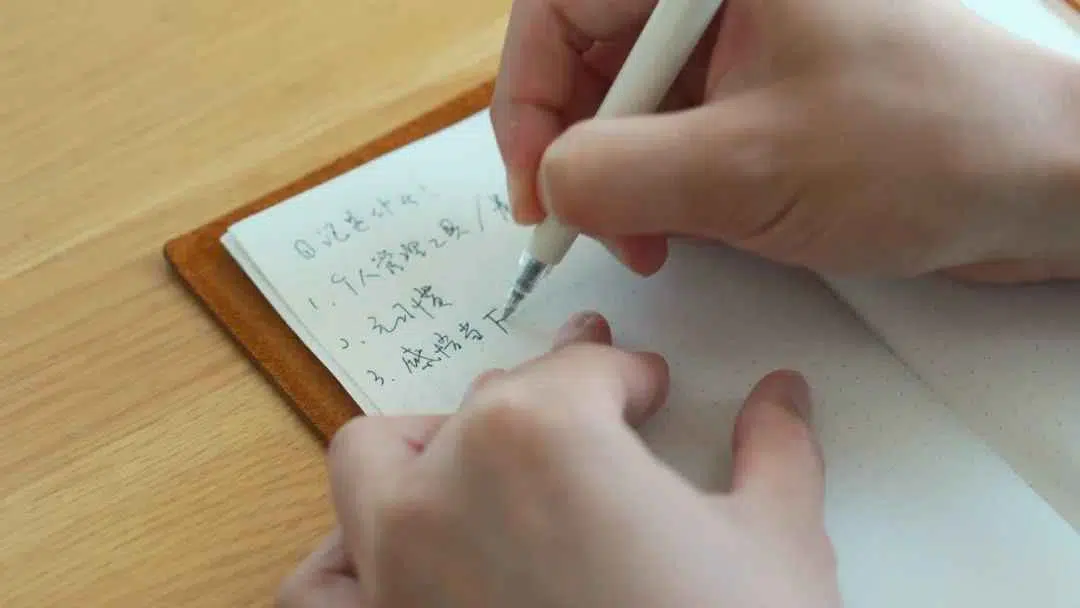 日记是什么？
1. 个人管理工具 /
2. 元习惯
3. 感悟当下